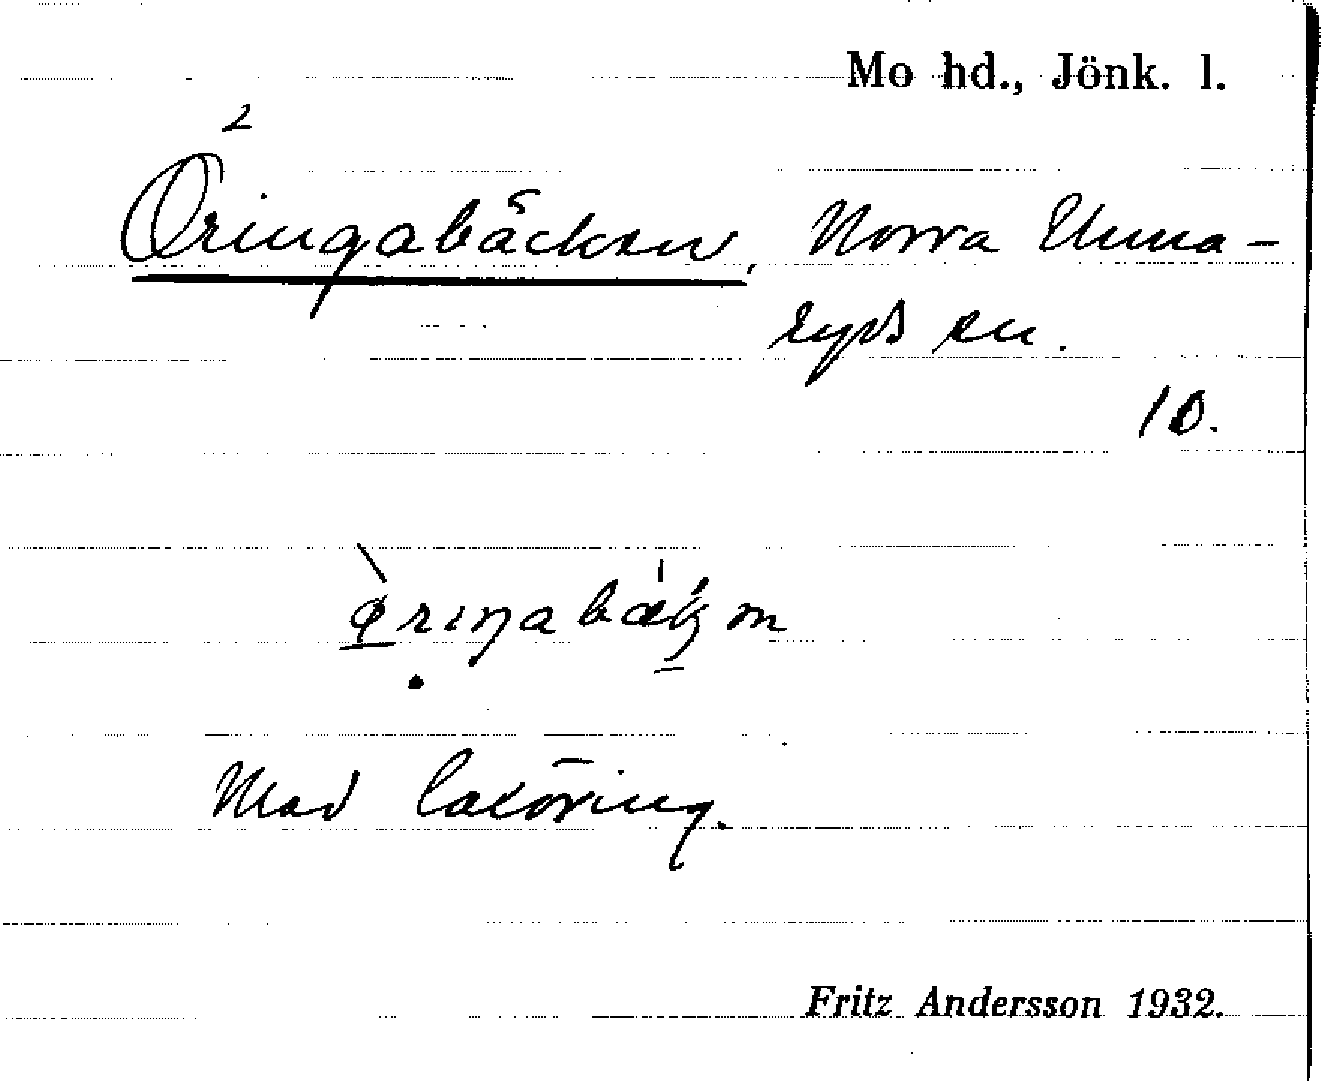 Mo hd., Jönk. l.
2
Öringabäcken, Norra Unna-
ryds sn.
10.
Med laxöring.
Fritz Andersson 1932.